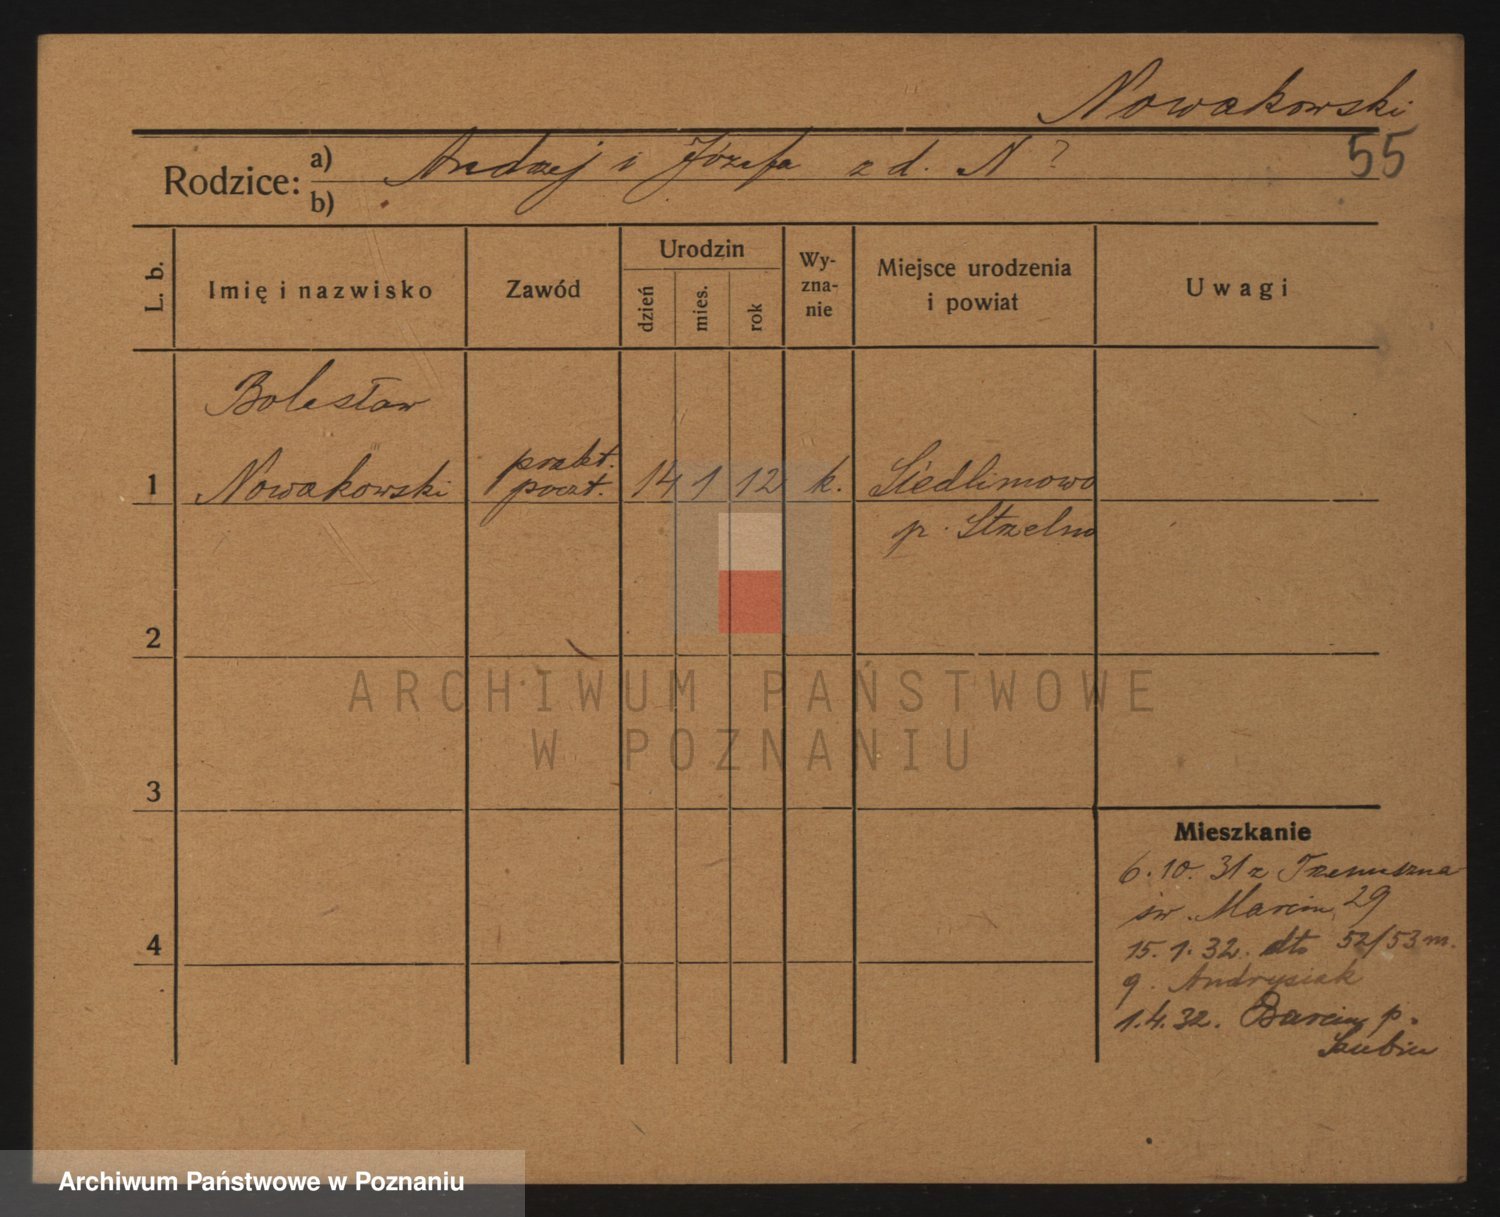 Nowakowski
55
Rodzice: a) Andzej i Józefa z d. N?
b)
L. b.
Imię i nazwisko
Zawód
Urodzin
dzień
mies.
rok
Wy-
zna-
nie
Miejsce urodzenia
i powiat
Uwagi
Bolesław
prakt.
1 Nowakowski poczt. 14 1 12 k. Siedlimowo
p. Strzelno
2
ARCHIWUM PAŃSTWOWE
W POZNANIU
3
Mieszkanie
6. 10. 31 z Trzemeszna
św. Marcin 29
15. 1. 32. dto 52/53 m.
9. Andrysiak
1. 4. 32. Barcin p.
Szubin
4
Archiwum Państwowe w Poznaniu